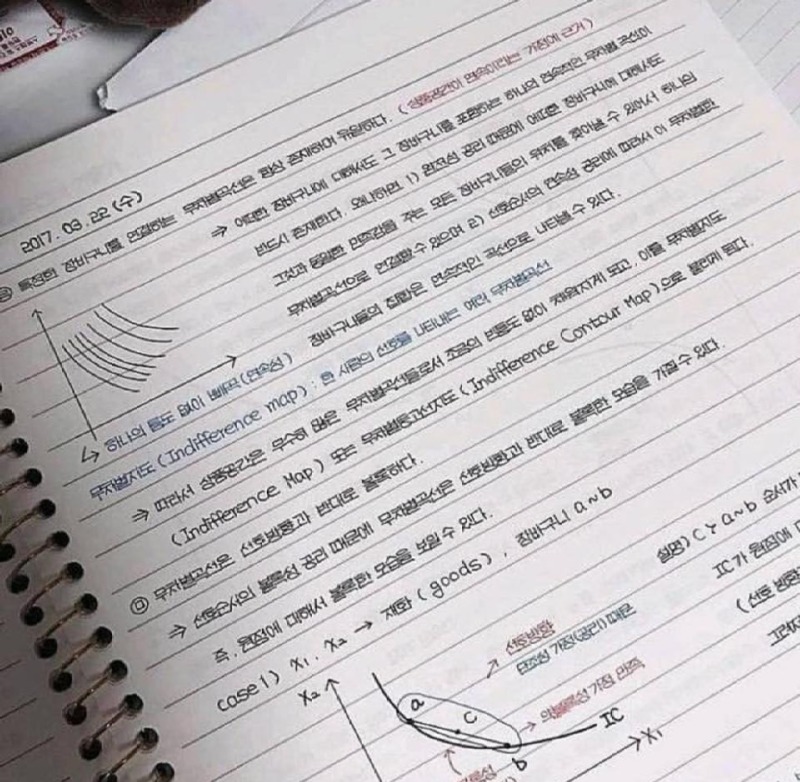 2017. 03. 22 (수)
특정한 장바구니를 연결하는 무차별곡선은 항상 존재하여 유일하다. (상품공간이 연속이라는 가정에 근거)
⇒ 어떠한 장바구니에 대해서도 그 장바구니를 포함하는 하나의 연속적인 무차별 곡선이
반드시 존재한다. 왜냐하면 1) 완전성 공리 때문에 어떠한 장바구니에 대해서도
그것과 동일한 만족감을 주는 모든 장바구니들의 위치를 찾아낼 수 있어서 하나의
무차별곡선으로 연결할 수 있으며 2) 선호순서의 연속성 공리에 따라서 이 무차별한
장바구니들의 집합은 연속적인 곡선으로 나타낼 수 있다.
↳ 하나의 틈도 없이 빼곡 (연속성)
무차별지도 (Indifference map) : 한 사람의 선호를 나타내는 여러 무차별곡선
⇒ 따라서 상품공간은 무수히 많은 무차별곡선들로서 조금의 빈틈도 없이 채워지게 되고, 이를 무차별지도
(Indifference Map) 또는 무차별등고선지도 (Indifference Contour Map)으로 불리게 된다.
ㅁ 무차별곡선은 선호방향과 반대로 볼록하다.
⇒ 선호순서의 볼록성 공리 때문에 무차별곡선은 선호방향과 반대로 볼록한 모습을 가질 수 있다.
즉, 원점에 대해서 볼록한 모습을 보일 수 있다.
case 1) X₁, X₂ → 재화 (goods), 장바구니 a~b
설명) C≻a~b 순서가
IC가 원점에 대
(선호 방향
그러
선호방향
단조성 가정(공리) 때문
X₂
a
c
b
강볼록성 가정 만족
IC
X₁
볼록성